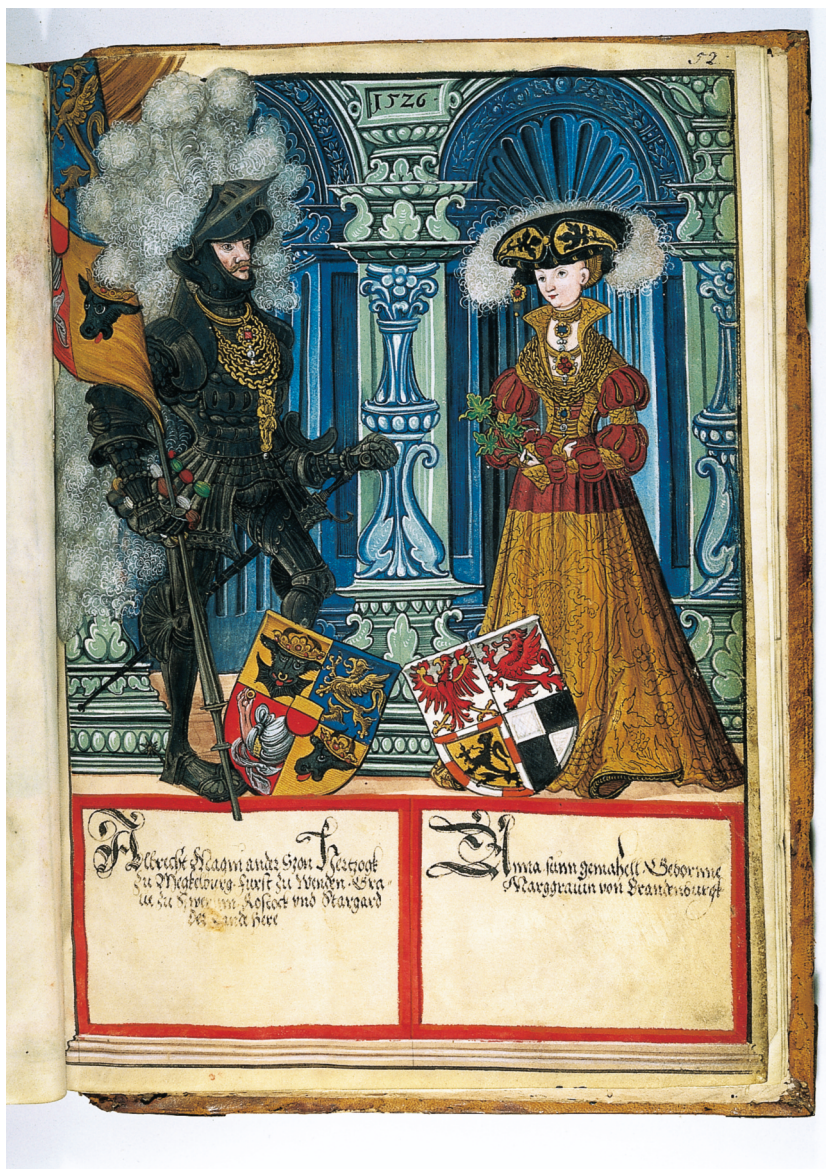 52
1526
Albrecht Magni ander Szon Hertzogk
zu Megkelburg Furst zu Wenden Gra-
ue zu Swerinn Rostock vnd Stargard
der Lande Here
Anna sunn gemahell Gebornne
Marggrauin von Brandenburgk